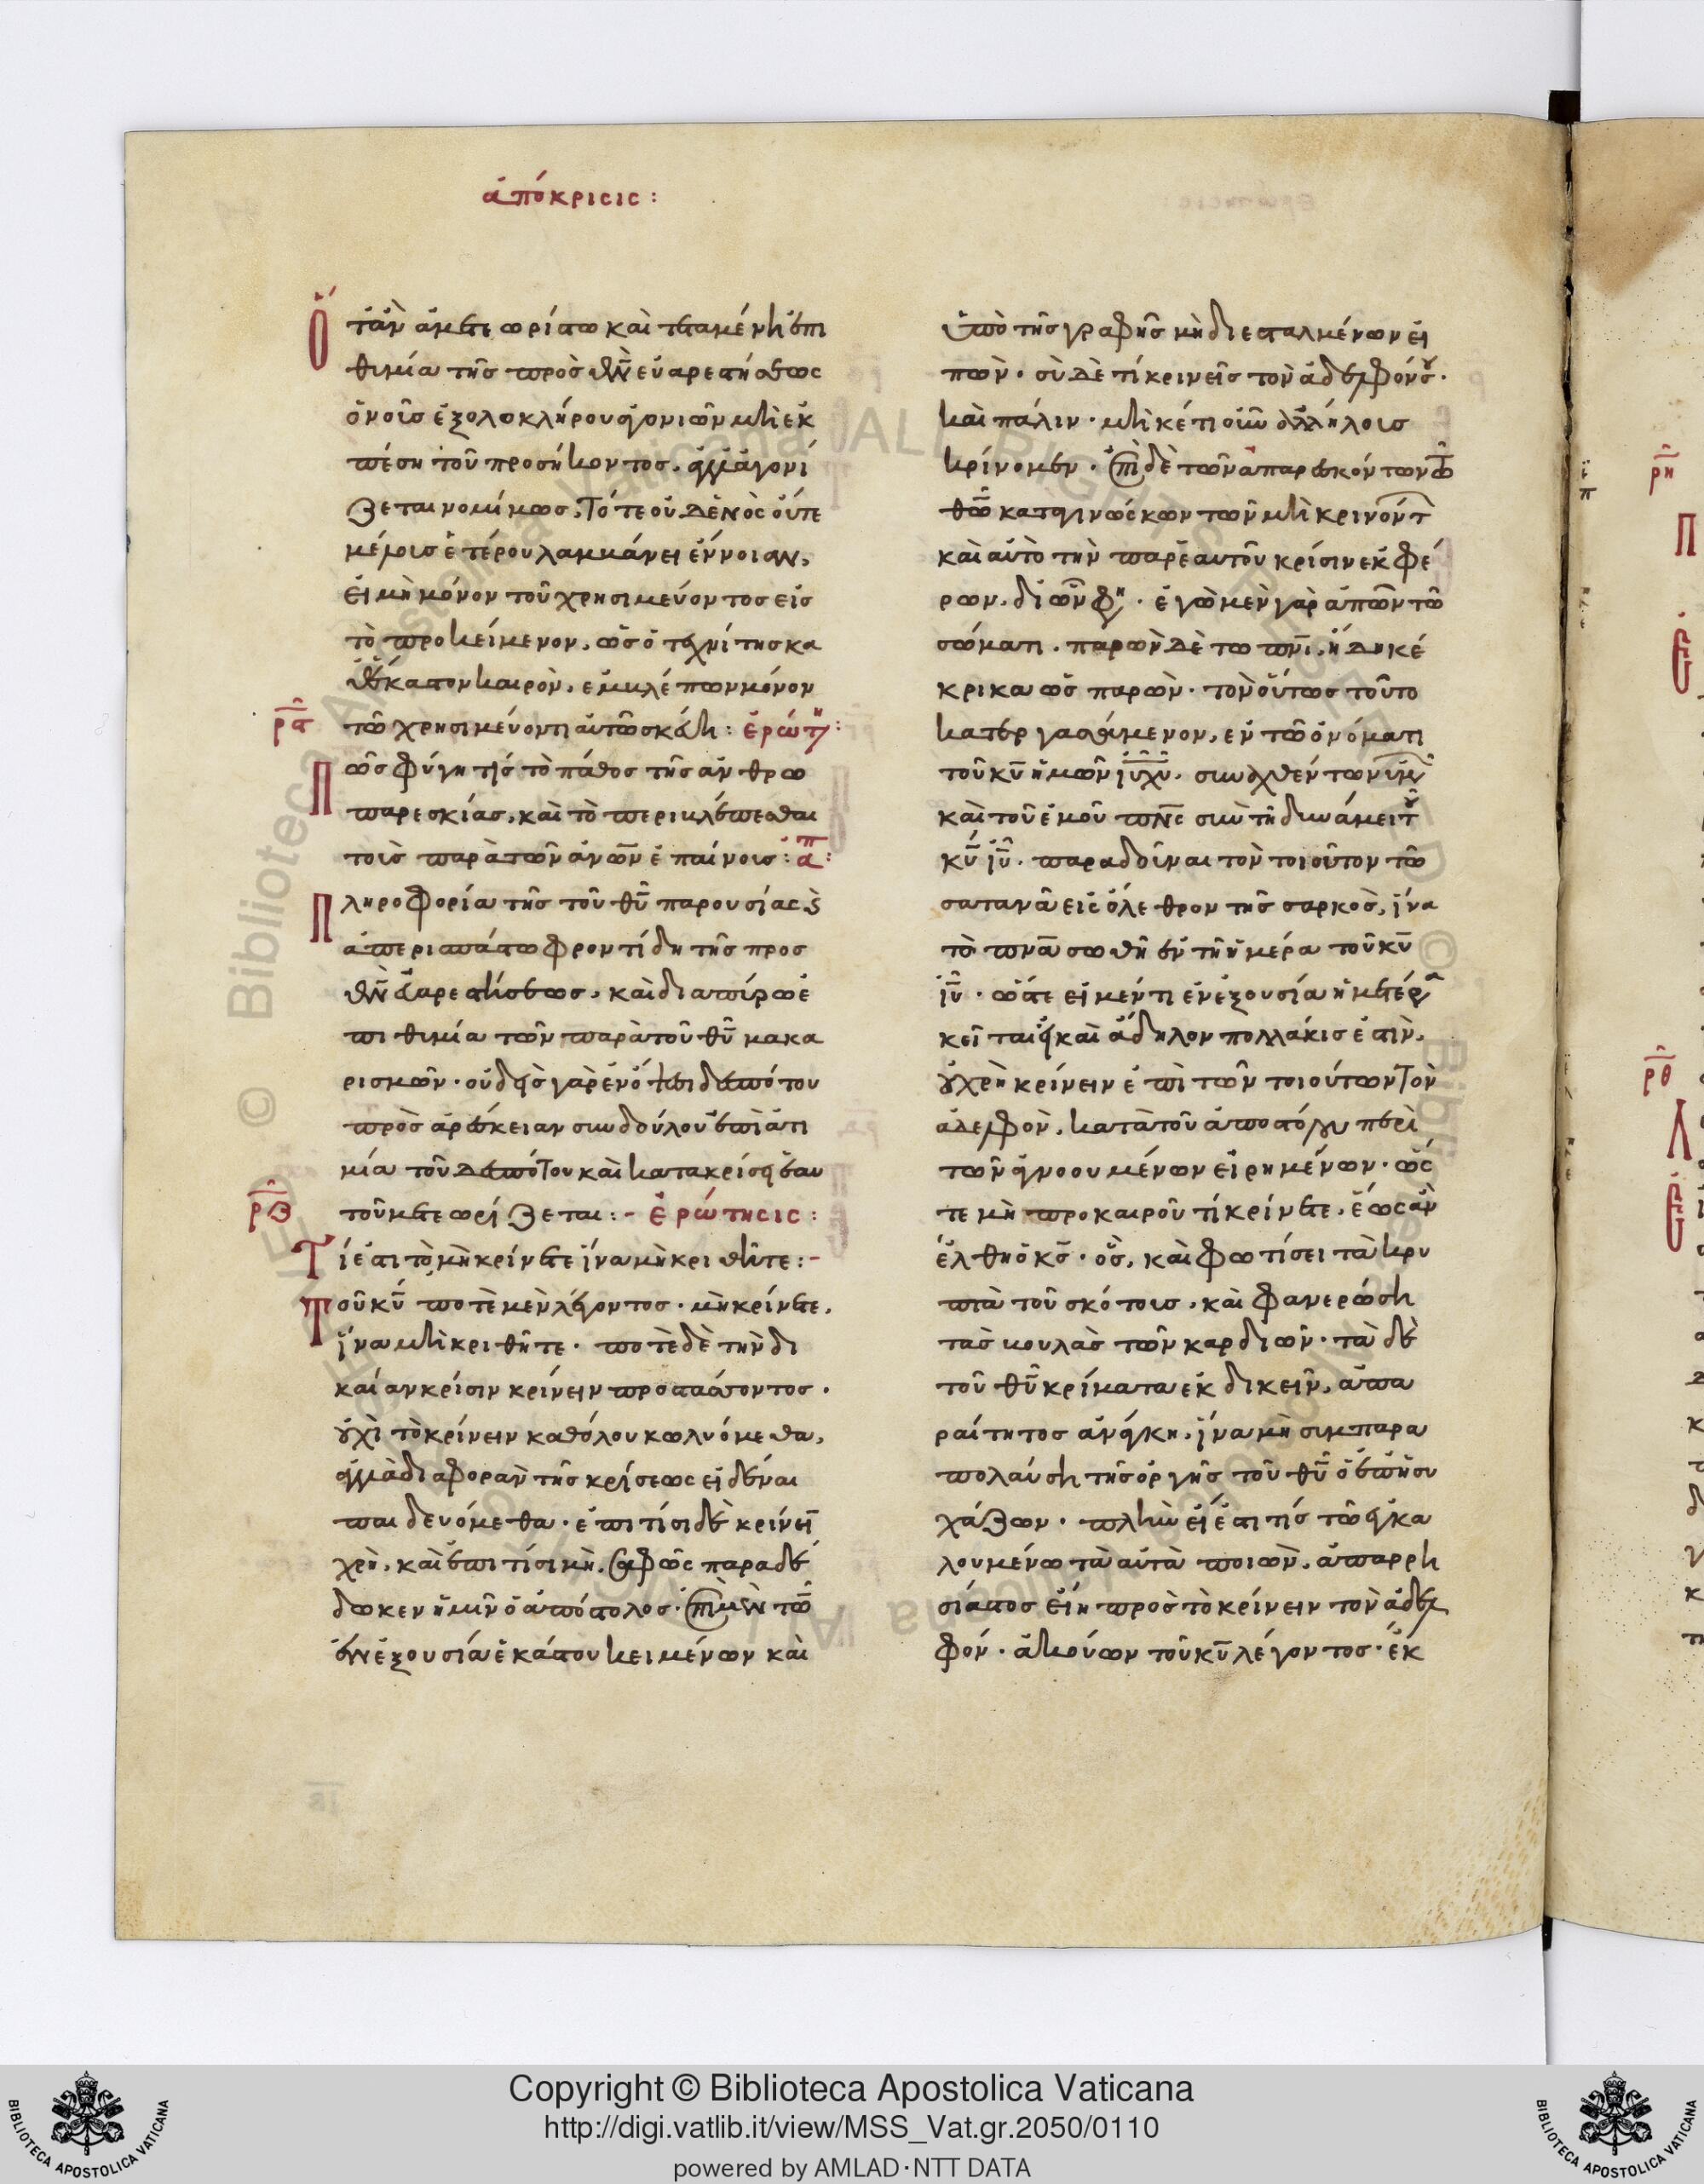 ἀπόκρισις:
Ὅταν ἀμετεωρίστω καὶ τεταμένη ἐπι
θυμία τῆς πρὸς θν̄ εὐαρεστήσεως
ὁ νοῦς ἐξ ὁλοκλήρου ἀγονιῶν μὴ ἐκ
πέση τοῦ προσήκοντος. ἀλλ' ἀγονί
ζεται νομίμως. Τότε οὐδενὸς οὔτε
μέμψις ἑτέρου λαμμάνει ἔννοιαν,
εἰ μὴ μόνον τοῦ χρησιμεύοντος εἰς
τὸ προκείμενον. ὡς ὁ τεχνίτης κα
θ' ἕκαστον καιρὸν, ἐμμλέπων μόνον
ρα τῶ χρησιμεύοντι αὐτῶ σκέβη: ἐρώτη:
Πῶς φύγη τίς τὸ πάθος τῆς ἀνθρω
παρεσκίας, καὶ τὸ περικλέπεσθαι
τοῖς παρὰ τῶν ἀνω̄ν ἐπαίνοις: ἀπ:
Πληροφορία τῆς τοῦ θῡ παρουσίας ϗ
ἀπερισπάστω φροντίδη τῆς προς
θν̄ εὐαρεστίσεως, καὶ διαπύρω ἐ
πιθυμία τῶν παρὰ τοῦ θῡ μακα
ρισμῶν. οὐδεὶς γὰρ ἐν ὄψει δεσπότου
πρὸς ἀρέσκειαν συνδούλου ἐπὶ ἀτι
μία τοῦ δεσπότου καὶ κατακρίσει ἑαυ
ρβ τοῦ μετεωρίζεται:- ἐρώτησις:
Τί ἐστι τὸ μὴ κρίνετε ἵνα μὴ κριθῆτε:-
Τοῦ κῡ ποτὲ μὲν λέγοντος. μὴ κρίνετε,
ἵνα μὴ κριθῆτε. ποτὲ δὲ τὴν δι
καίαν κρίσιν κρίνειν προστάσσοντος.
οὐχὶ τὸ κρίνειν καθόλου κωλυόμεθα,
ἀλλὰ διαφορὰν τῆς κρίσεως εἰδέναι
παιδευόμεθα. ἐπὶ τίσι δὲ κρίνειν
χρὴ, καὶ ἐπι τίσι μὴ, σαφῶς παραδέ
δωκεν ἡμῖν ὁ ἀπόστολος. ἐπὶ μὲν τῶν
ἐν ἐξουσία ἑκάστου κειμένων καὶ
ὑπὸ τῆς γραφῆς μὴ διεσταλμένων εἰ
πών. σὺ δὲ τί κρινεῖς τὸν ἀδελφόν σου.
καὶ πάλιν. μὴκέτι οὖν ἀλλήλους
κρίνομεν. ἐπὶ δὲ τῶν ἀπαρεσκόντων τῶ
θω̄ καταγινώσκων τῶν μὴ κρινόντ
καὶ αὐτὸ τὴν παρ' ἑαυτοῦ κρίσιν ἐκφέ
ρων. δι' ὧν φη. ἐγὼ μὲν γὰρ ἀπὼν τῶ
σώματι. παρὼν δὲ τω πνῑ, ἤδη κέ
κρικα ὡς παρὼν. τὸν οὕτως τοῦτο
κατεργασάμενον, ἐν τῶ ὀνόματι
τοῦ κῡ ἡμῶν ῑῡ χῡ, συναχθέντων ὑμ
καὶ τοῦ ἐμοῦ πν̄ς σὺν τῆ δυνάμει τοῦ
κῡ ῑῡ. παραδοῦναι τὸν τοιοῦτον τῶ
σατανᾶ εἰς ὄλεθρον τῆς σαρκὸς, ἵνα
τὸ πνᾱ σωθῆ ἐν τῆ ἡμέρα τοῦ κῡ
ῑῡ. ὥστε εἰ μέντι ἐν ἐξουσία ἡμετέρα
κεῖται ἢ καὶ ἄδηλον πολλάκις ἐστὶν,
οὐ χρὴ κρίνειν ἐπὶ τῶν τοιούτων τὸν
ἀδελφὸν, κατὰ τοῦ ἀποστόλου περὶ
τῶν ἀγνοουμένων εἰρημένων. ὥς
τε μὴ προ καιροῦ τί κρίνετε, ἕως ἂν
ἔλθη ὁ κς̄. ὃς, καὶ φωτίσει τὰ κρυ
πτὰ τοῦ σκότους, καὶ φανερώση
τὰς μουλὰς τῶν καρδιῶν. τὰ δὲ
τοῦ θῡ κρίματα ἐκδικεῖν, ἀπα
ραίτητος ἀνάγκη, ἵνα μὴ συμπαρα
πολαύση τῆς ὀργῆς τοῦ θῡ ὁ ἐπησυ
χάζων. πλὴν εἰ ἐστι τίς τῶ ἐγκα
λουμένω τὰ αὐτὰ ποιῶν, ἀπαρρη
σίαστος εἴη πρὸς τὸ κρίνειν τὸν ἀδελ
φόν. ἀκούων τοῦ κῡ λέγοντος. ἔκ
Copyright © Biblioteca Apostolica Vaticana
http://digi.vatlib.it/view/MSS_Vat.gr.2050/0110
powered by AMLAD·NTT DATA